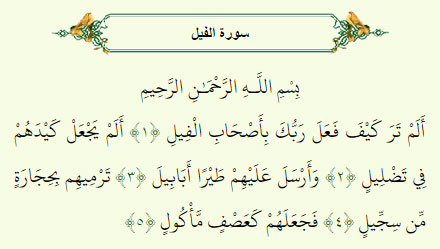 سورة الفيل
بِسْمِ اللَّـهِ الرَّحْمَـٰنِ الرَّحِيمِ
أَلَمْ تَرَ كَيْفَ فَعَلَ رَبُّكَ بِأَصْحَابِ الْفِيلِ ﴿١﴾ أَلَمْ يَجْعَلْ كَيْدَهُمْ
فِي تَضْلِيلٍ ﴿٢﴾ وَأَرْسَلَ عَلَيْهِمْ طَيْرًا أَبَابِيلَ ﴿٣﴾ تَرْمِيهِم بِحِجَارَةٍ
مِّن سِجِّيلٍ ﴿٤﴾ فَجَعَلَهُمْ كَعَصْفٍ مَّأْكُولٍ ﴿٥﴾